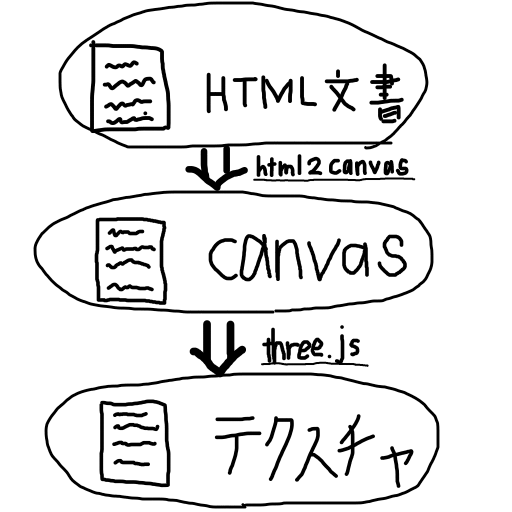 HTML文書
html2canvas
canvas
three.js
テクスチャ